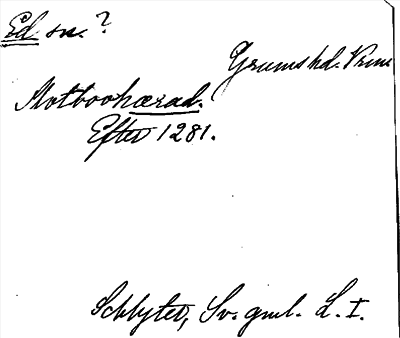 Ed sn.?
Grums hd. Vrml
Motboohærad.
Efter 1281.
Schlyter, Sv. gml. L. I.